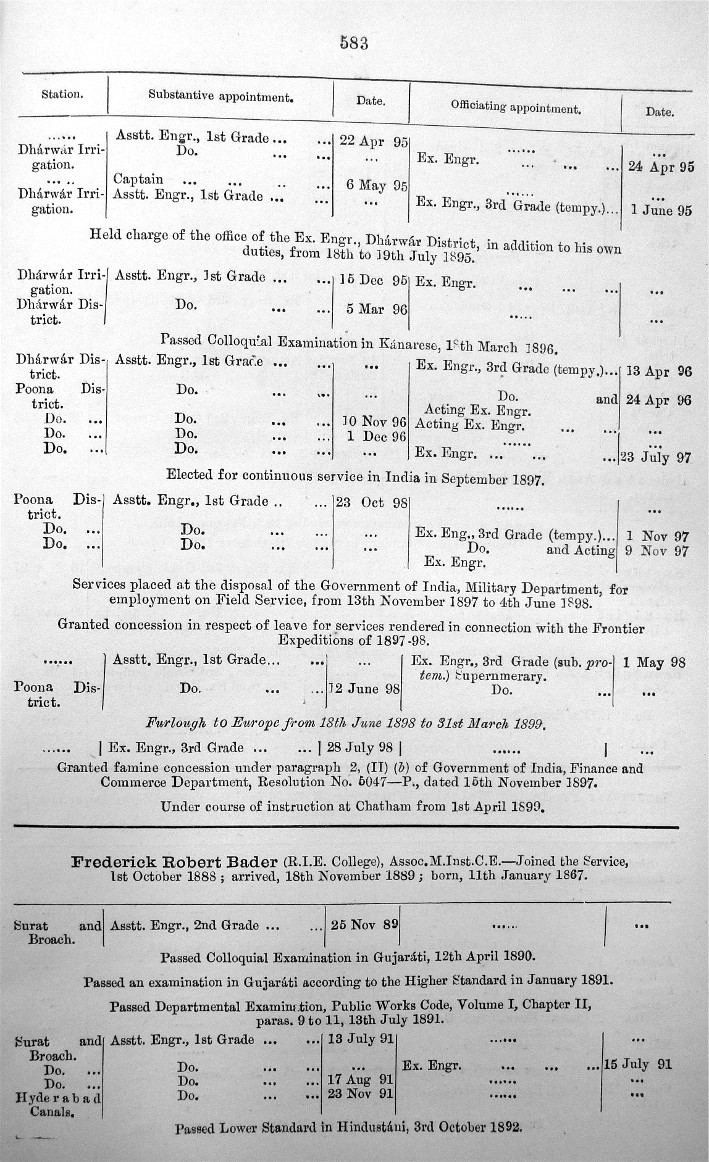 583
Station. Substantive appointment. Date. Officiating appointment. Date.
...... Asstt. Engr., 1st Grade ... ... 22 Apr 95 ...... ...
Dhárwár Irri- Do. ... ... ... Ex. Engr. ... ... ... 24 Apr 95
gation.
... .. Captain ... ... .. ... 6 May 95 ...... ...
Dhárwár Irri- Asstt. Engr., 1st Grade ... ... ... Ex. Engr., 3rd Grade (tempy.)... 1 June 95
gation.
Held charge of the office of the Ex. Engr., Dhárwár District, in addition to his own
duties, from 18th to 19th July 1895.
Dhárwár Irri- Asstt. Engr., 1st Grade ... ... 15 Dec 95 Ex. Engr. ... ... ... ...
gation.
Dhárwár Dis- Do. ... ... 5 Mar 96 ..... ...
trict.
Passed Colloquial Examination in Kánarese, 1th March 1896.
Dhárwár Dis- Asstt. Engr., 1st Grade ... ... ... Ex. Engr., 3rd Grade (tempy.)... 13 Apr 96
trict.
Poona Dis- Do. ... ... ... Do. and 24 Apr 96
trict. Acting Ex. Engr.
Do. ... Do. ... ... 10 Nov 96 Acting Ex. Engr. ... ... ... ...
Do. ... Do. ... ... 1 Dec 96 ...... ...
Do. ... Do. ... ... ... Ex. Engr. ... ... ... 23 July 97
Elected for continuous service in India in September 1897.
Poona Dis- Asstt. Engr., 1st Grade .. ... 23 Oct 98 ...... ...
trict.
Do. ... Do. ... ... ... Ex. Eng., 3rd Grade (tempy.)... 1 Nov 97
Do. ... Do. ... ... ... Do. and Acting 9 Nov 97
Ex. Engr.
Services placed at the disposal of the Government of India, Military Department, for
employment on Field Service, from 13th November 1897 to 4th June 1898.
Granted concession in respect of leave for services rendered in connection with the Frontier
Expeditions of 1897-98.
...... Asstt. Engr., 1st Grade... ... ... Ex. Engr., 3rd Grade (sub. pro- 1 May 98
tem.) Supernmerary.
Poona Dis- Do. ... ... 12 June 98 Do. ... ...
trict.
Furlough to Europe from 18th June 1898 to 31st March 1899.
...... Ex. Engr., 3rd Grade ... ... 28 July 98 ...... ...
Granted famine concession under paragraph 2, (II) (b) of Government of India, Finance and
Commerce Department, Resolution No. 5047—P., dated 15th November 1897.
Under course of instruction at Chatham from 1st April 1899.
Frederick Robert Bader (R.I.E. College), Assoc.M.Inst.C.E.—Joined the Service,
1st October 1888 ; arrived, 18th November 1889 ; born, 11th January 1867.
Surat and Asstt. Engr., 2nd Grade ... ... 25 Nov 89 ...... ...
Broach.
Passed Colloquial Examination in Gujaráti, 12th April 1890.
Passed an examination in Gujaráti according to the Higher Standard in January 1891.
Passed Departmental Examination, Public Works Code, Volume I, Chapter II,
paras. 9 to 11, 13th July 1891.
Surat and Asstt. Engr., 1st Grade ... ... 13 July 91 ...... ...
Broach.
Do. ... Do. ... ... ... Ex. Engr. ... ... ... 15 July 91
Do. ... Do. ... ... 17 Aug 91 ...... ...
Hyderabad Do. ... ... 23 Nov 91 ...... ...
Canals.
Passed Lower Standard in Hindustáni, 3rd October 1892.